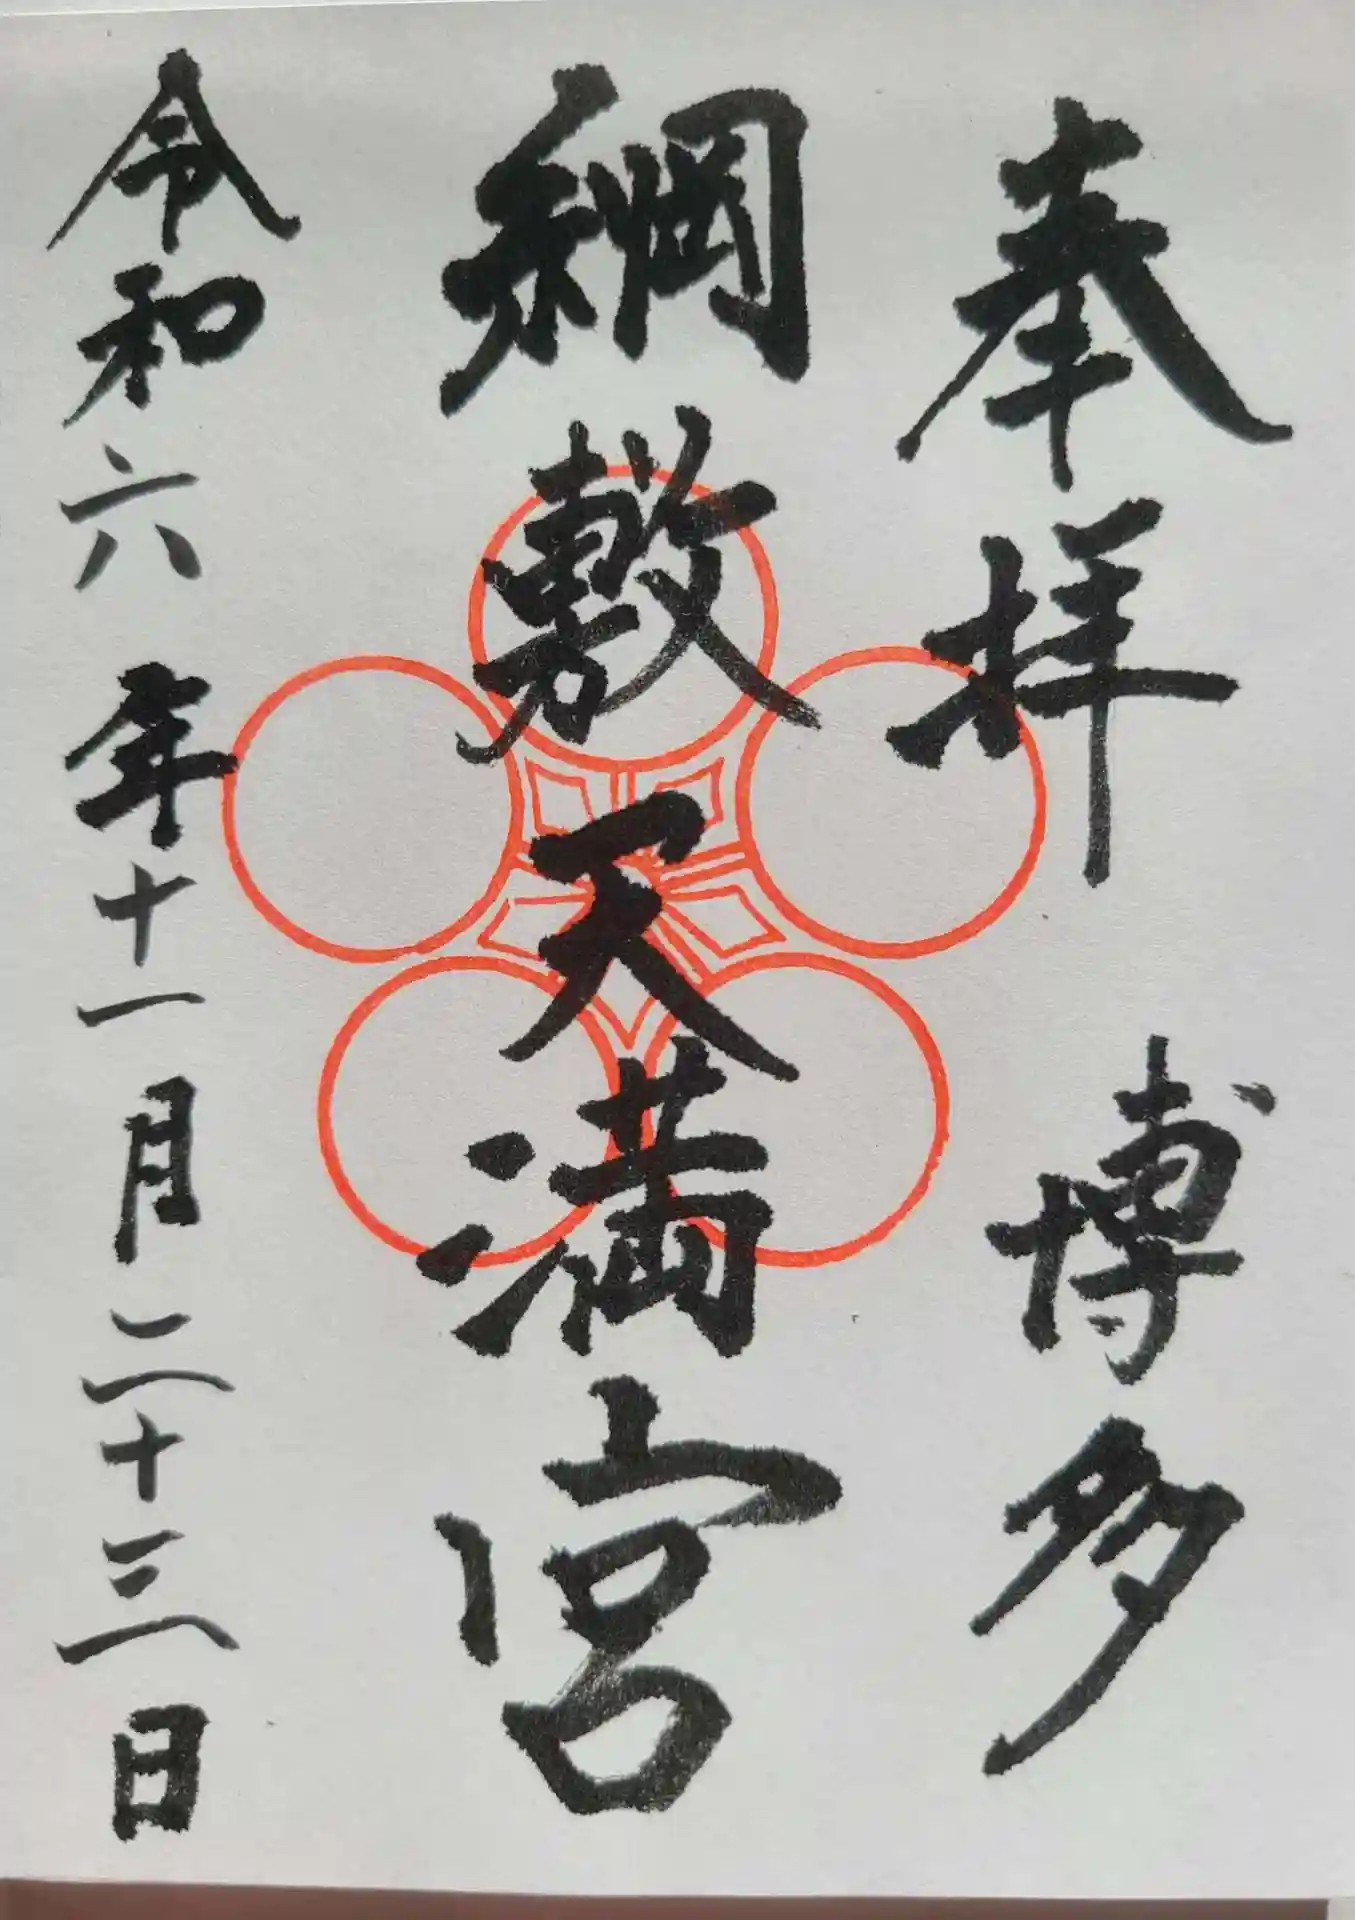 奉拝　博多
綱敷天満宮
令和六年十一月二十三日